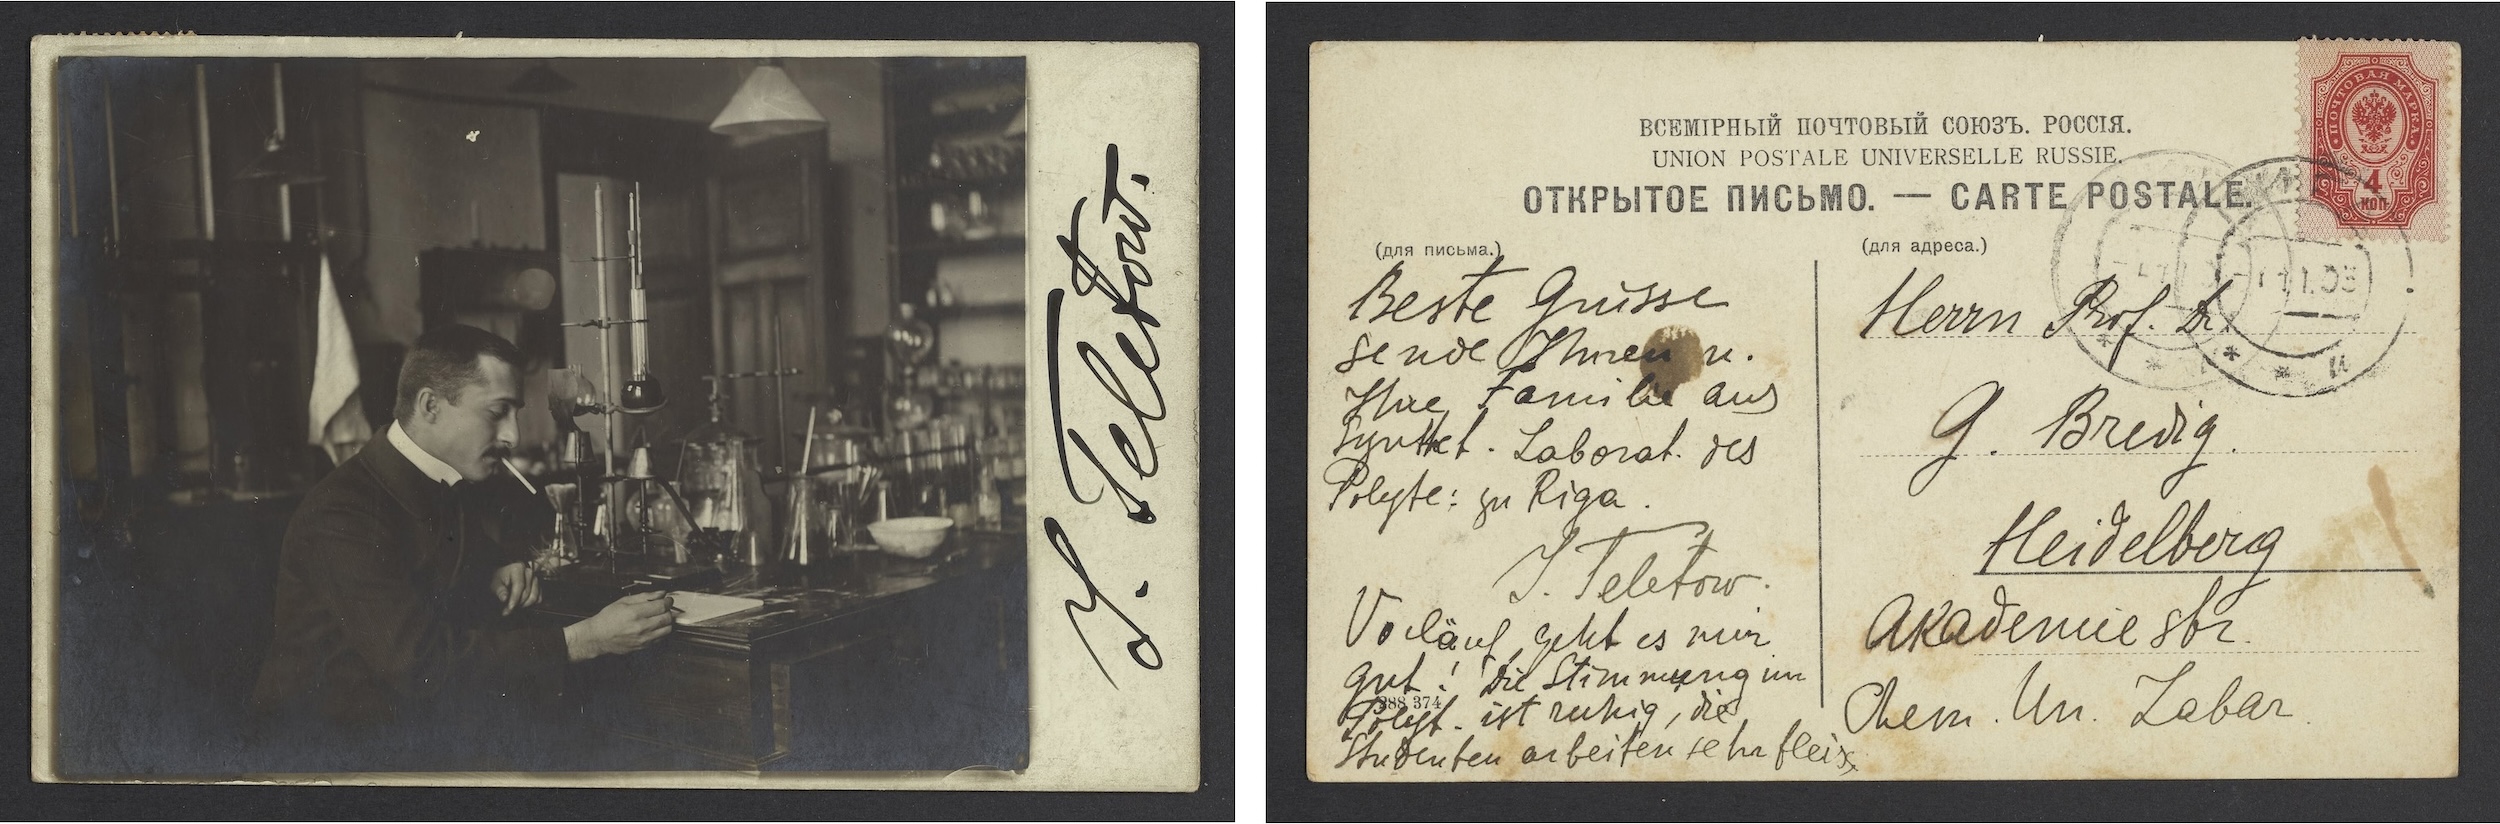 J. Teletow.
ВСЕМІРНЫЙ ПОЧТОВЫЙ СОЮЗЪ. РОССІЯ.
UNION POSTALE UNIVERSELLE RUSSIE.
ОТКРЫТОЕ ПИСЬМО. — CARTE POSTALE.
ПОЧТОВАЯ МАРКА
4
КОП
(для письма.)
Beste Grüsse
sende Ihnen u.
Ihre Familie aus
Synthet. Laborat. des
Polyte: zu Riga.
J. Teletow.
Vorläuf, geht es mir
gut! Die Stimmung im
288 374
Polyt. ist ruhig, die
Studenten arbeiten sehr fleis
(для адреса.)
Herrn Prof. Dr
G. Bredig.
Heidelberg
Akademie str.
Chem. Un. Labor.